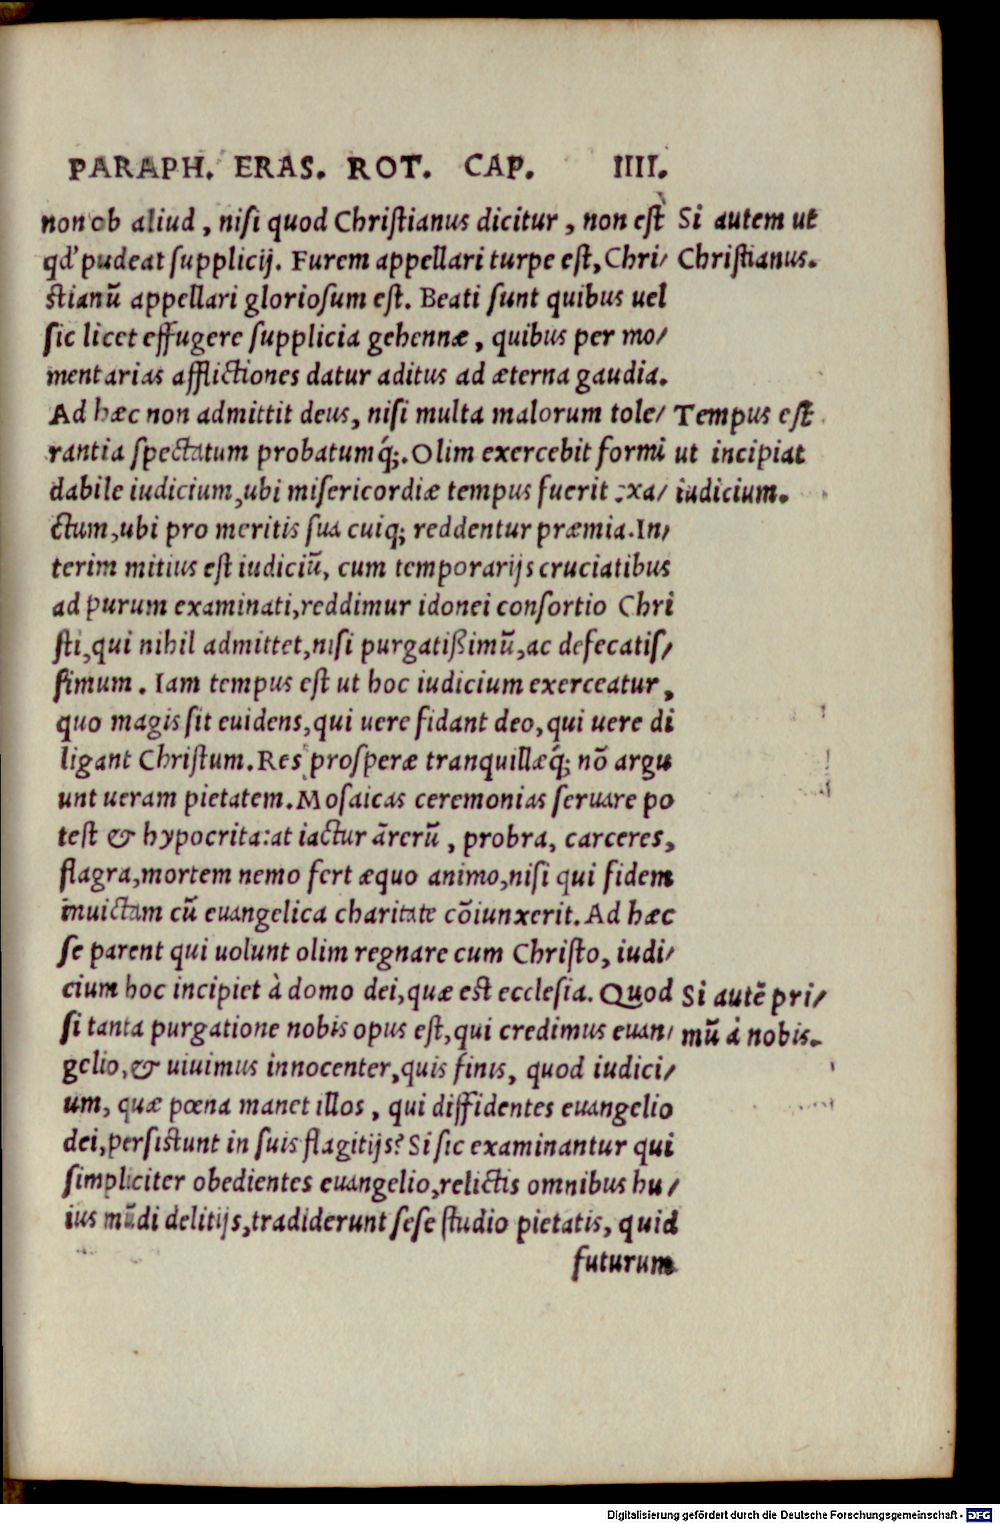 PARAPH. ERAS. ROT. CAP. IIII.
non ob aliud, nisi quod Christianus dicitur, non est
qd' pudeat supplicij. Furem appellari turpe est, Chri/
stianū appellari gloriosum est. Beati sunt quibus uel
sic licet effugere supplicia gehennæ, quibus per mo/
mentarias afflictiones datur aditus ad æterna gaudia.
Ad hæc non admittit deus, nisi multa malorum tole/
rantia spectatum probatumq́;. Olim exercebit formi
dabile iudicium, ubi misericordiæ tempus fuerit exa/
ctum, ubi pro meritis sua cuiq; reddentur præmia. In/
terim mitius est iudiciū, cum temporarijs cruciatibus
ad purum examinati, reddimur idonei consortio Chri
sti, qui nihil admittet, nisi purgatißimū, ac defecatis/
simum. Iam tempus est ut hoc iudicium exerceatur,
quo magis sit euidens, qui uere fidant deo, qui uere di
ligant Christum. Res prosperæ tranquillæq́; nō argu
unt ueram pietatem. Mosaicas ceremonias seruare po
test & hypocrita: at iactur ā rerū, probra, carceres,
flagra, mortem nemo fert æquo animo, nisi qui fidem
inuictam cū euangelica charitate cōiunxerit. Ad hæc
se parent qui uolunt olim regnare cum Christo, iudi/
cium hoc incipiet à domo dei, quæ est ecclesia. Quod
si tanta purgatione nobis opus est, qui credimus euan/
gelio, & uiuimus innocenter, quis finis, quod iudici/
um, quæ pœna manet illos, qui diffidentes euangelio
dei, persistunt in suis flagitijs? Si sic examinantur qui
simpliciter obedientes euangelio, relictis omnibus hu/
ius mūdi delitijs, tradiderunt sese studio pietatis, quid
futurum
Si autem ut
Christianus.
Tempus est
ut incipiat
iudicium.
Si autē pri/
mū à nobis.
Digitalisierung gefördert durch die Deutsche Forschungsgemeinschaft - DFG